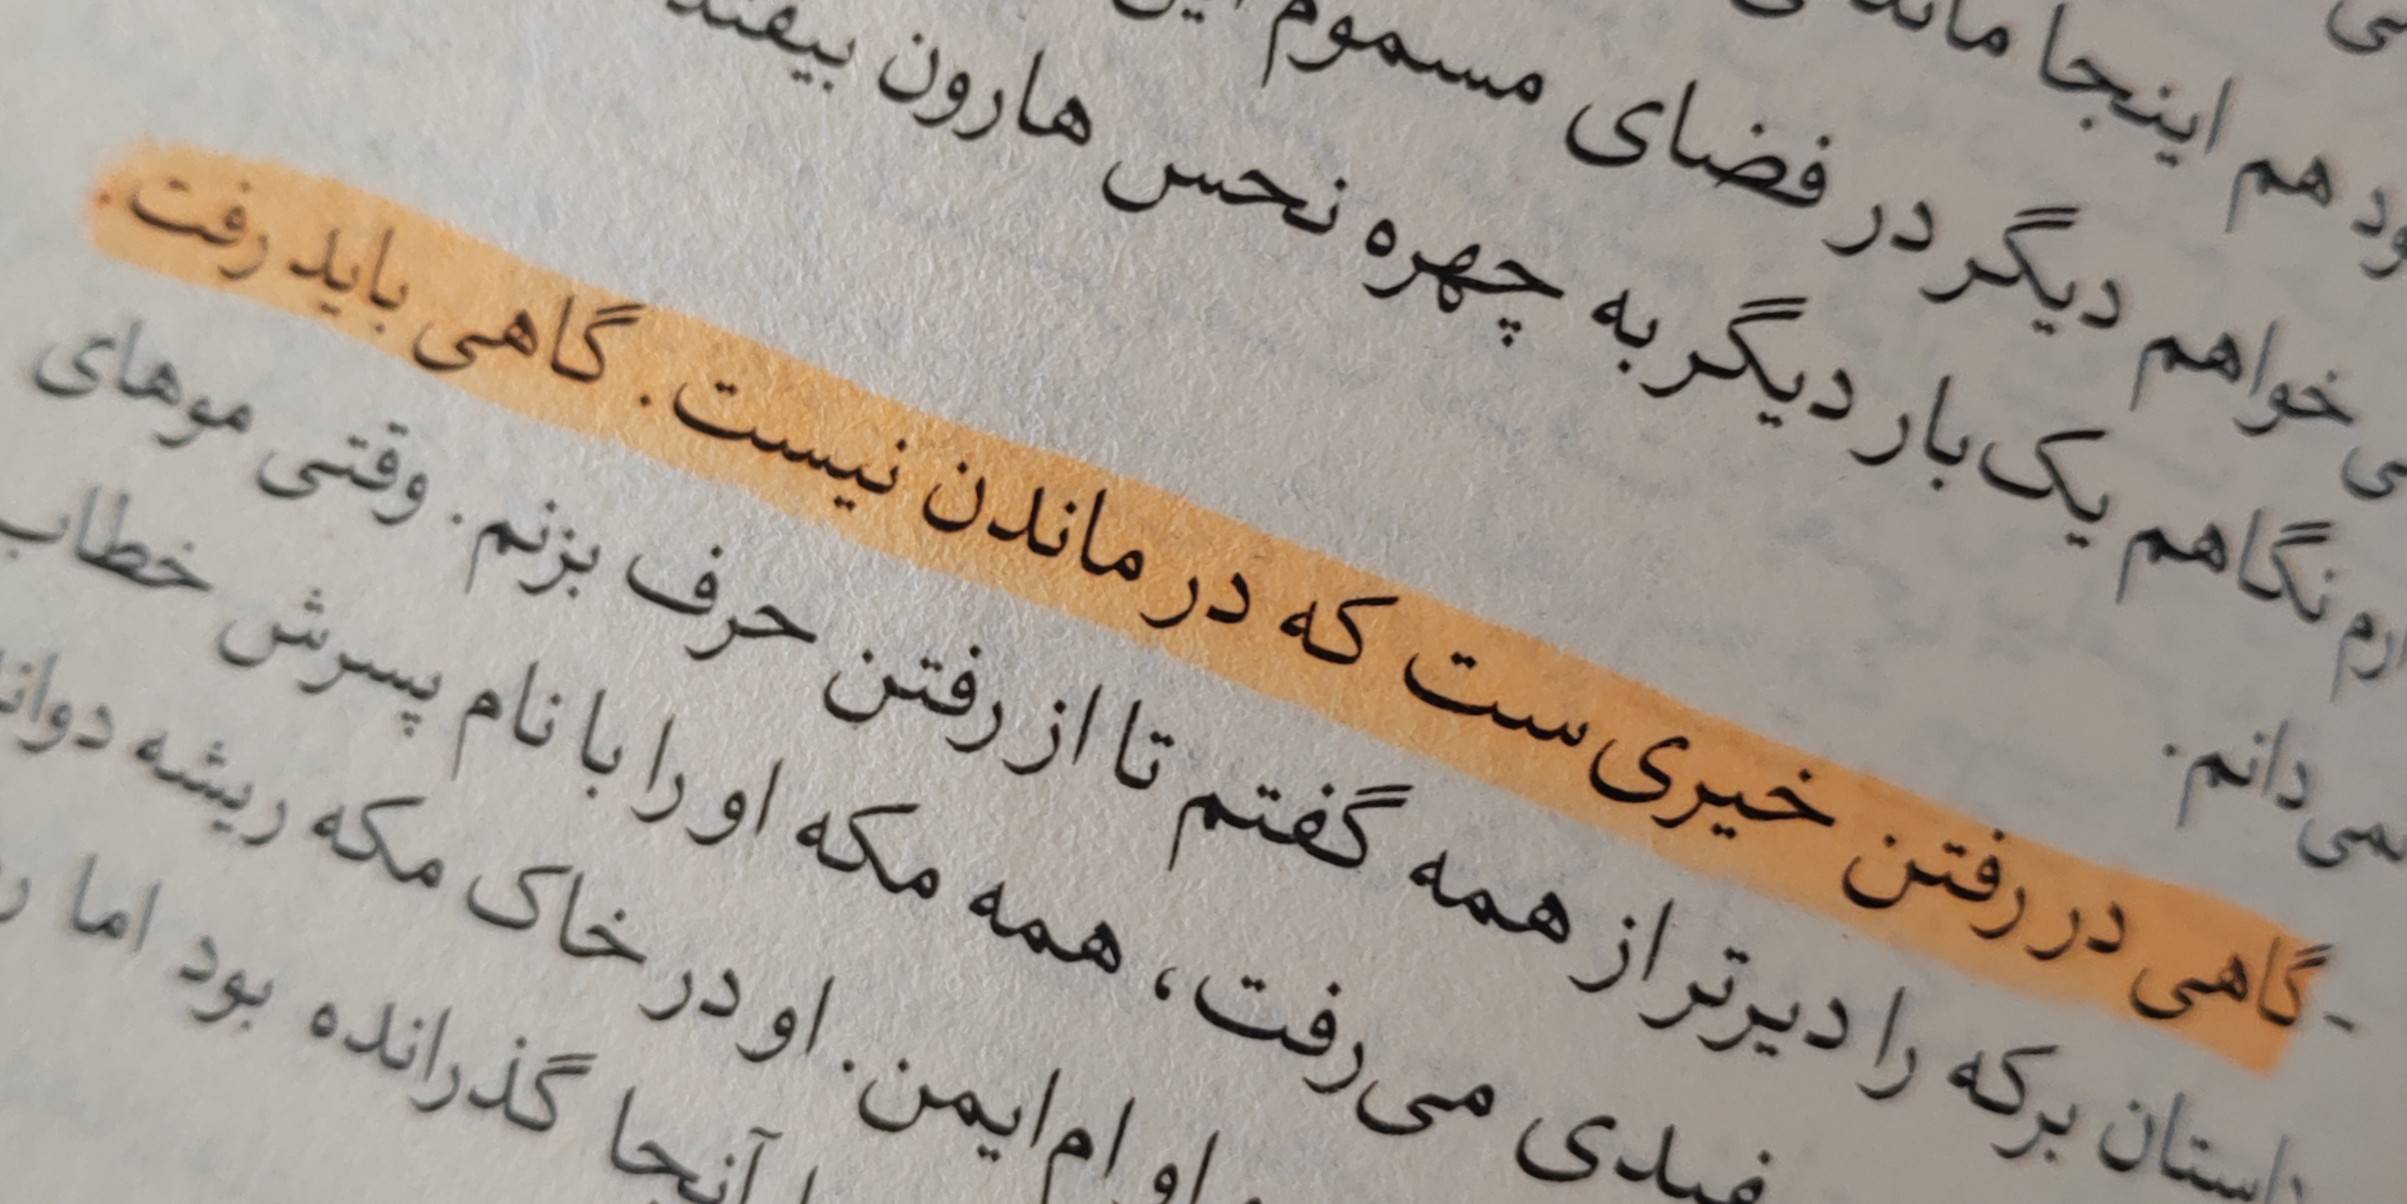 هم اینجا
خواهم دیگر در فضای مسموم
نگاهم یک‌بار دیگر به چهره نحس هارون بیفتد
نمی‌دانم.
- گاهی در رفتن خیری‌ست که در ماندن نیست. گاهی باید رفت.
داستان برکه را دیرتر از همه گفتم تا از رفتن حرف بزنم. وقتی موهای
می‌رفت، همه مکه او را با نام پسرش خطاب
او ام‌ایمن. او در خاک مکه ریشه
آنجا گذرانده بود اما